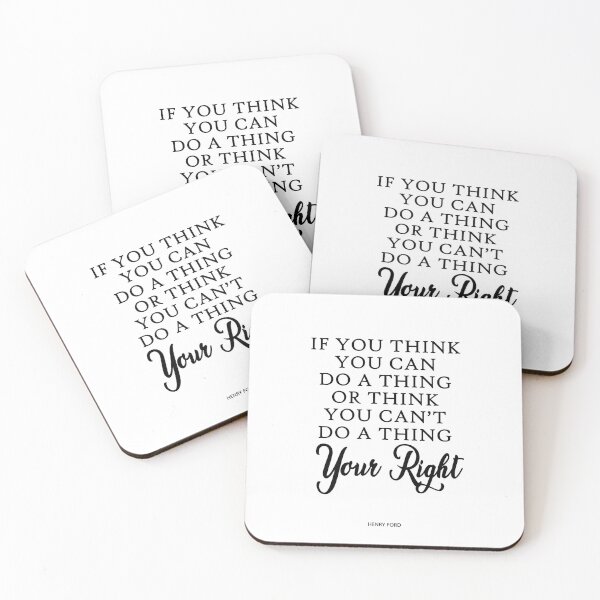 IF YOU THINK
YOU CAN
DO A THING
OR THINK
YOU CAN'T
IF YOU THINK
YOU CAN
DO A THING
OR THINK
YOU CAN'T
DO A THING
Your Right
IF YOU THINK
YOU CAN
DO A THING
OR THINK
YOU CAN'T
DO A THING
Your
HENRY
IF YOU THINK
YOU CAN
DO A THING
OR THINK
YOU CAN'T
DO A THING
Your Right
HENRY FORD